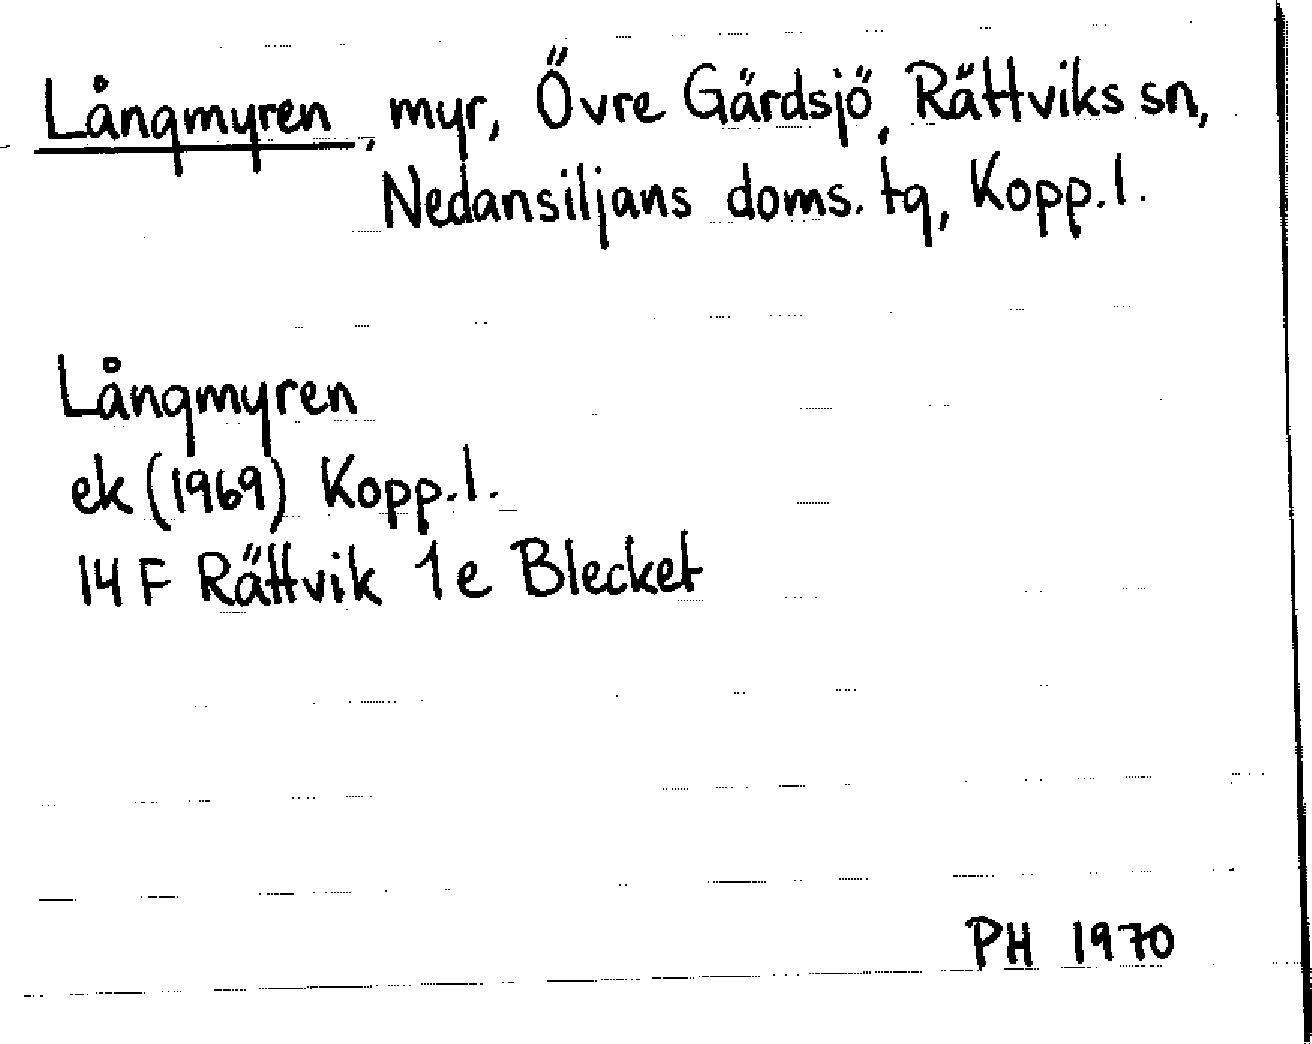 Långmyren, myr, Övre Gärdsjö, Rättviks sn,
Nedansiljans doms. tg, Kopp. l.
Långmyren
ek (1969) Kopp. l.
14 F Rättvik 1e Blecket
PH 1970